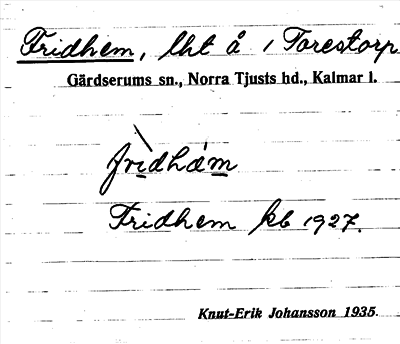 Fridhem, lht å 1 Torestorp
Gärdserums sn., Norra Tjusts hd., Kalmar l.
fri̲dhàm̲
Fridhem kb 1927.
Knut-Erik Johansson 1935.